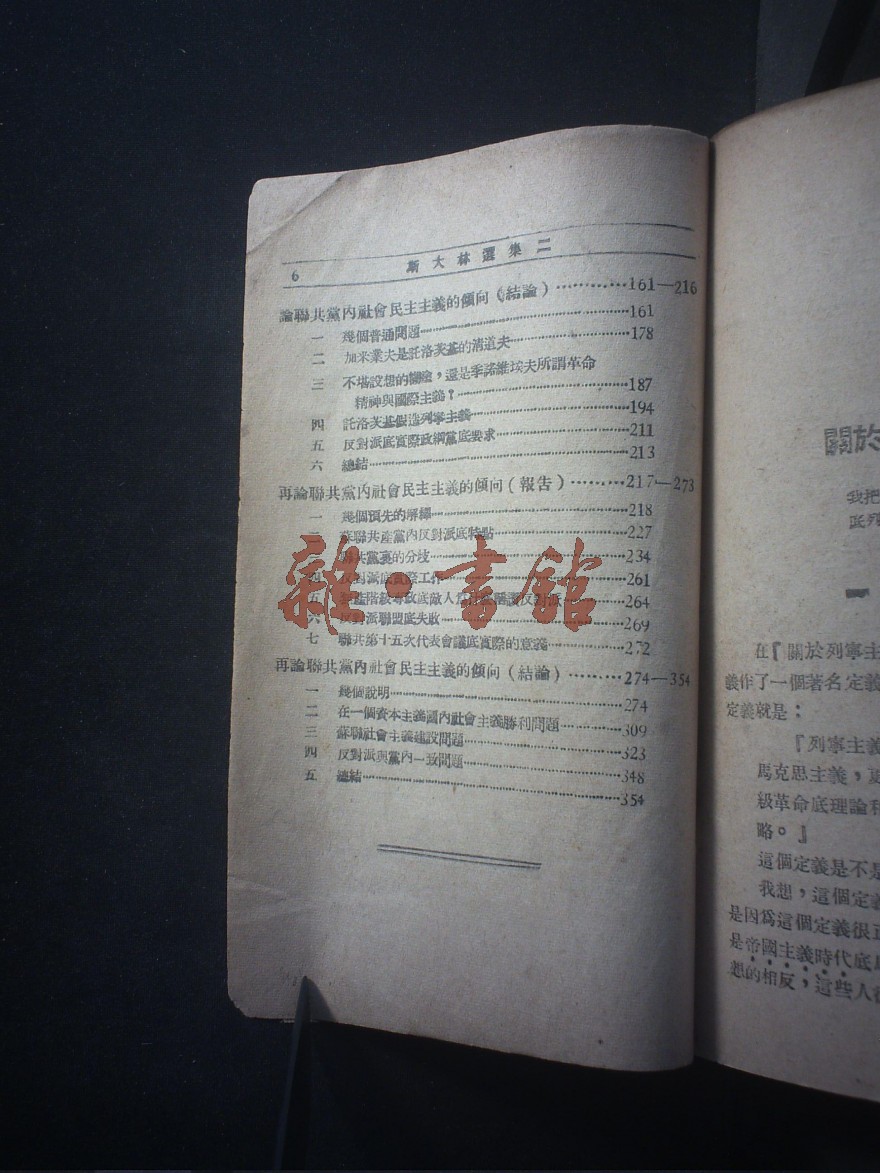 6 斯大林選集二
論聯共黨內社會民主主義的傾向（結論）…………161—216
一 幾個普通問題……161
二 加米業夫是託洛茨基的清道夫……178
三 不堪設想的糊塗，還是季諾維埃夫所謂革命
精神與國際主義？……187
四 託洛茨基假造列寧主義……194
五 反對派底實際政綱黨底要求……211
六 總結……213
再論聯共黨內社會民主主義的傾向（報告）………217—273
一 幾個預先的解釋……218
蘇聯共產黨內反對派底特點……227
聯共黨裏的分歧……234
四 反對派底實際工作……261
五 階級專政底敵人……264
六 反對派聯盟底失敗……269
七 聯共第十五次代表會議底實際的意義……272
再論聯共黨內社會民主主義的傾向（結論）………274—354
一 幾個說明……274
二 在一個資本主義國內社會主義勝利問題……309
三 蘇聯社會主義建設問題……323
四 反對派與黨內一致問題……348
五 總結……354
雜·書館
關於
我把
底列
一
在『關於列寧主
義作了一個著名定義
定義就是：
『列寧主義
馬克思主義，更
級革命底理論和
略。』
這個定義是不是
我想，這個定義
是因為這個定義很正
是帝國主義時代底
想的相反，這些人